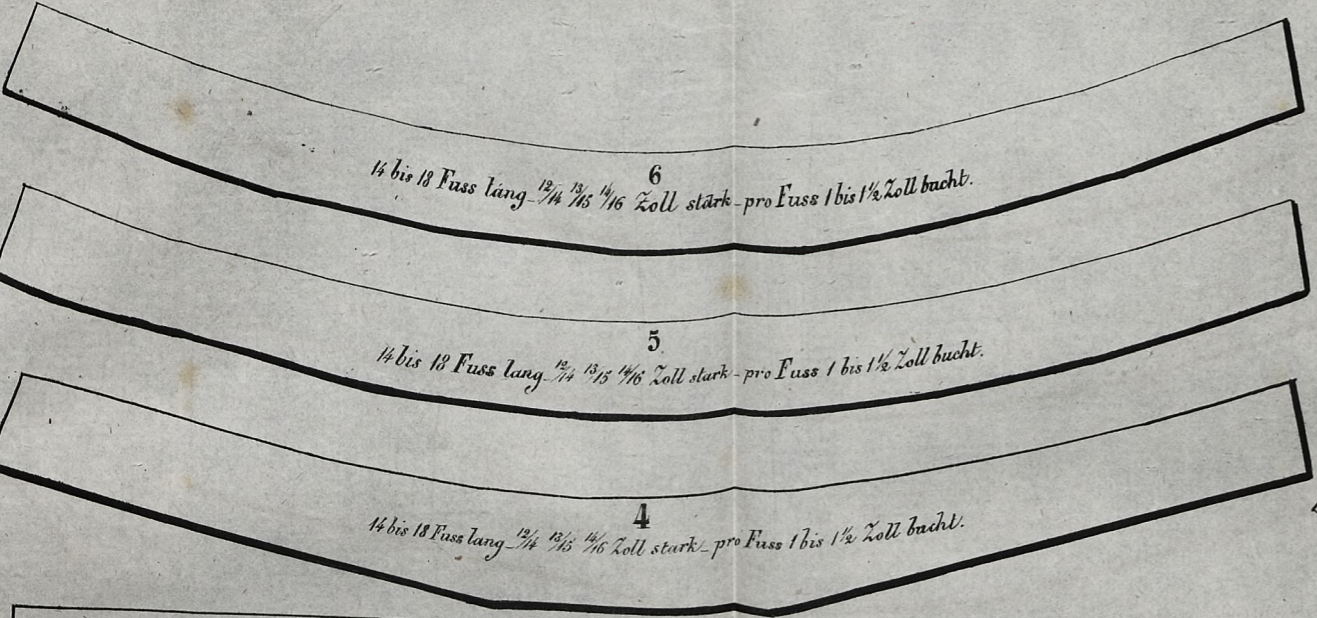 6
14 bis 18 Fuss lang - 12/14 13/15 14/16 Zoll stark - pro Fuss 1 bis 1 1/2 Zoll bucht.
5
14 bis 18 Fuss lang - 12/14 13/15 14/16 Zoll stark - pro Fuss 1 bis 1 1/2 Zoll bucht.
4
14 bis 18 Fuss lang - 12/14 13/15 14/16 Zoll stark - pro Fuss 1 bis 1 1/2 Zoll bucht.